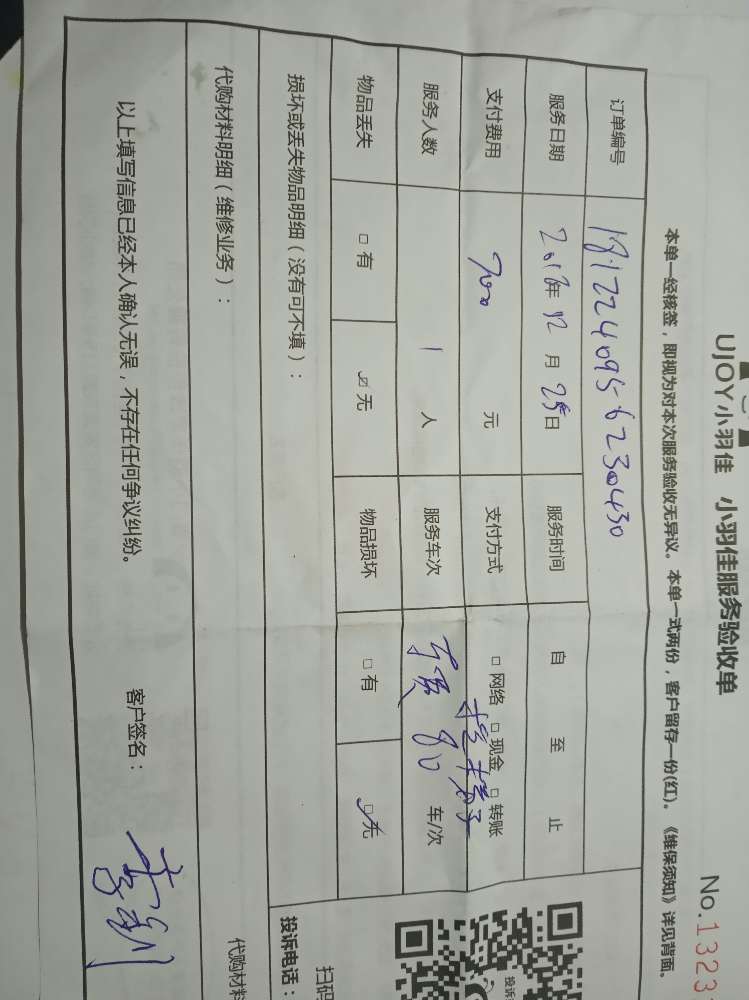 UJOY小羽佳 小羽佳服务验收单
No.1323
本单一经核签，即视为对本次服务验收无异议。本单一式两份，客户留存一份(红)。《维保须知》详见背面。
订单编号
服务日期 年 12 月 25日 服务时间 自 至 止
支付费用 元 支付方式 □ 网络 □ 现金 □ 转账
服务人数 1 人 服务车次 80 车/次
物品丢失 □ 有 ☑ 无 物品损坏 □ 有 ☑ 无
损坏或丢失物品明细（没有可不填）：
投诉电话：
扫码
投诉
代购材料明细（维修业务）：
代购材料
以上填写信息已经本人确认无误，不存在任何争议纠纷。 客户签名：